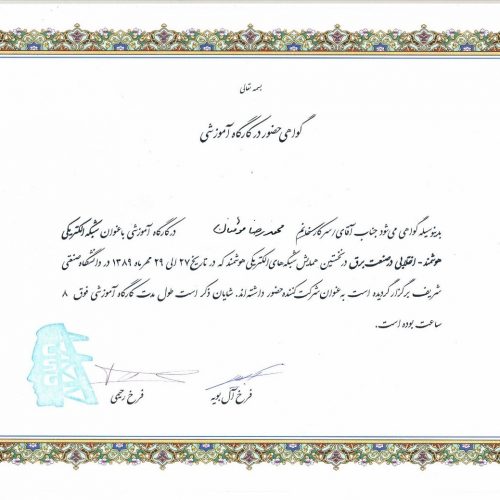 بسمه تعالی
گواهی حضور در کارگاه آموزشی
بدینوسیله گواهی می شود جناب آقای/سرکار خانم محمدرضا در کارگاه آموزشی با عنوان شبکه الکتریکی
هوشمند - انقلابی در صنعت برق در نخستین همایش شبکه های الکتریکی هوشمند که در تاریخ ۲۷ الی ۲۹ مهر ماه ۱۳۸۹ در دانشگاه صنعتی
شریف برگزار گردیده است به عنوان شرکت کننده حضور داشته اند. شایان ذکر است طول مدت کارگاه آموزشی فوق ۸
ساعت بوده است.
فرخ آل بویه
فرخ رحیمی